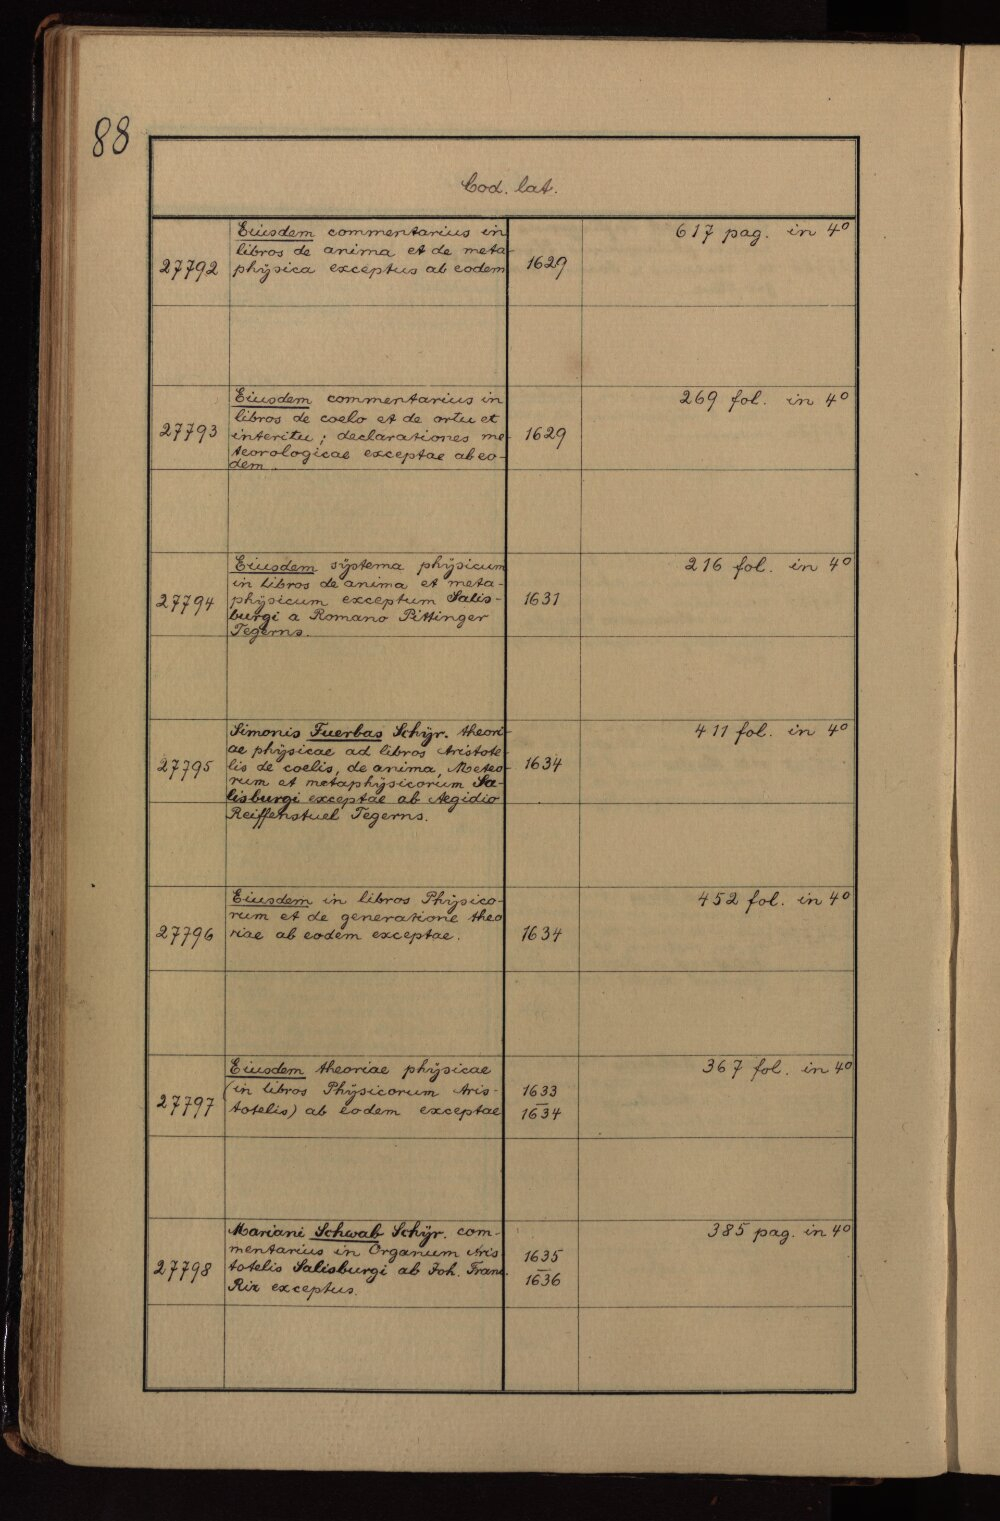 88
Cod. lat.
27792
Eiusdem commentarius in
libros de anima et de meta-
physica exceptus ab eodem
1629
617 pag. in 4º
27793
Eiusdem commentarius in
libros de coelo et de ortu et
interitu; declarationes me-
teorologicae exceptae ab eo-
dem.
1629
269 fol. in 4º
27794
Eiusdem systema physicum
in libros de anima et meta-
physicum exceptum Salis-
burgi a Romano Pittinger
Tegerns.
1631
216 fol. in 4º
27795
Simonis Fuerbas Schÿr. theori-
ae physicae ad libros Aristote-
lis de coelis, de anima, Meteo-
rum et metaphysicorum Sa-
lisburgi exceptae ab Aegidio
Reiffenstuel Tegerns.
1634
411 fol. in 4º
27796
Eiusdem in libros Physico-
rum et de generatione theo
riae ab eodem exceptae.
1634
452 fol. in 4º
27797
Eiusdem theoriae physicae
(in libros Physicorum Aris-
totelis) ab eodem exceptae
1633
1634
367 fol. in 4º
27798
Mariani Schwab Schÿr. com-
mentarius in Organum Aris
totelis Salisburgi ab Joh. Franc.
Rix exceptus.
1635
1636
385 pag. in 4º